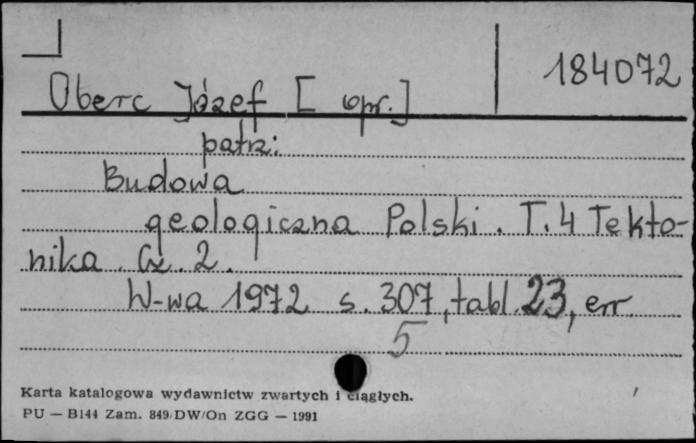 184072
Oberc Józef [opr.]
patrz:
Budowa
geologiczna Polski. T. 4 Tekto-
nika. Cz. 2.
W-wa 1972 s. 307, tabl. 23, err.
5
Karta katalogowa wydawnictw zwartych i ciągłych.
PU — B144 Zam. 849/DW/On ZGG — 1991